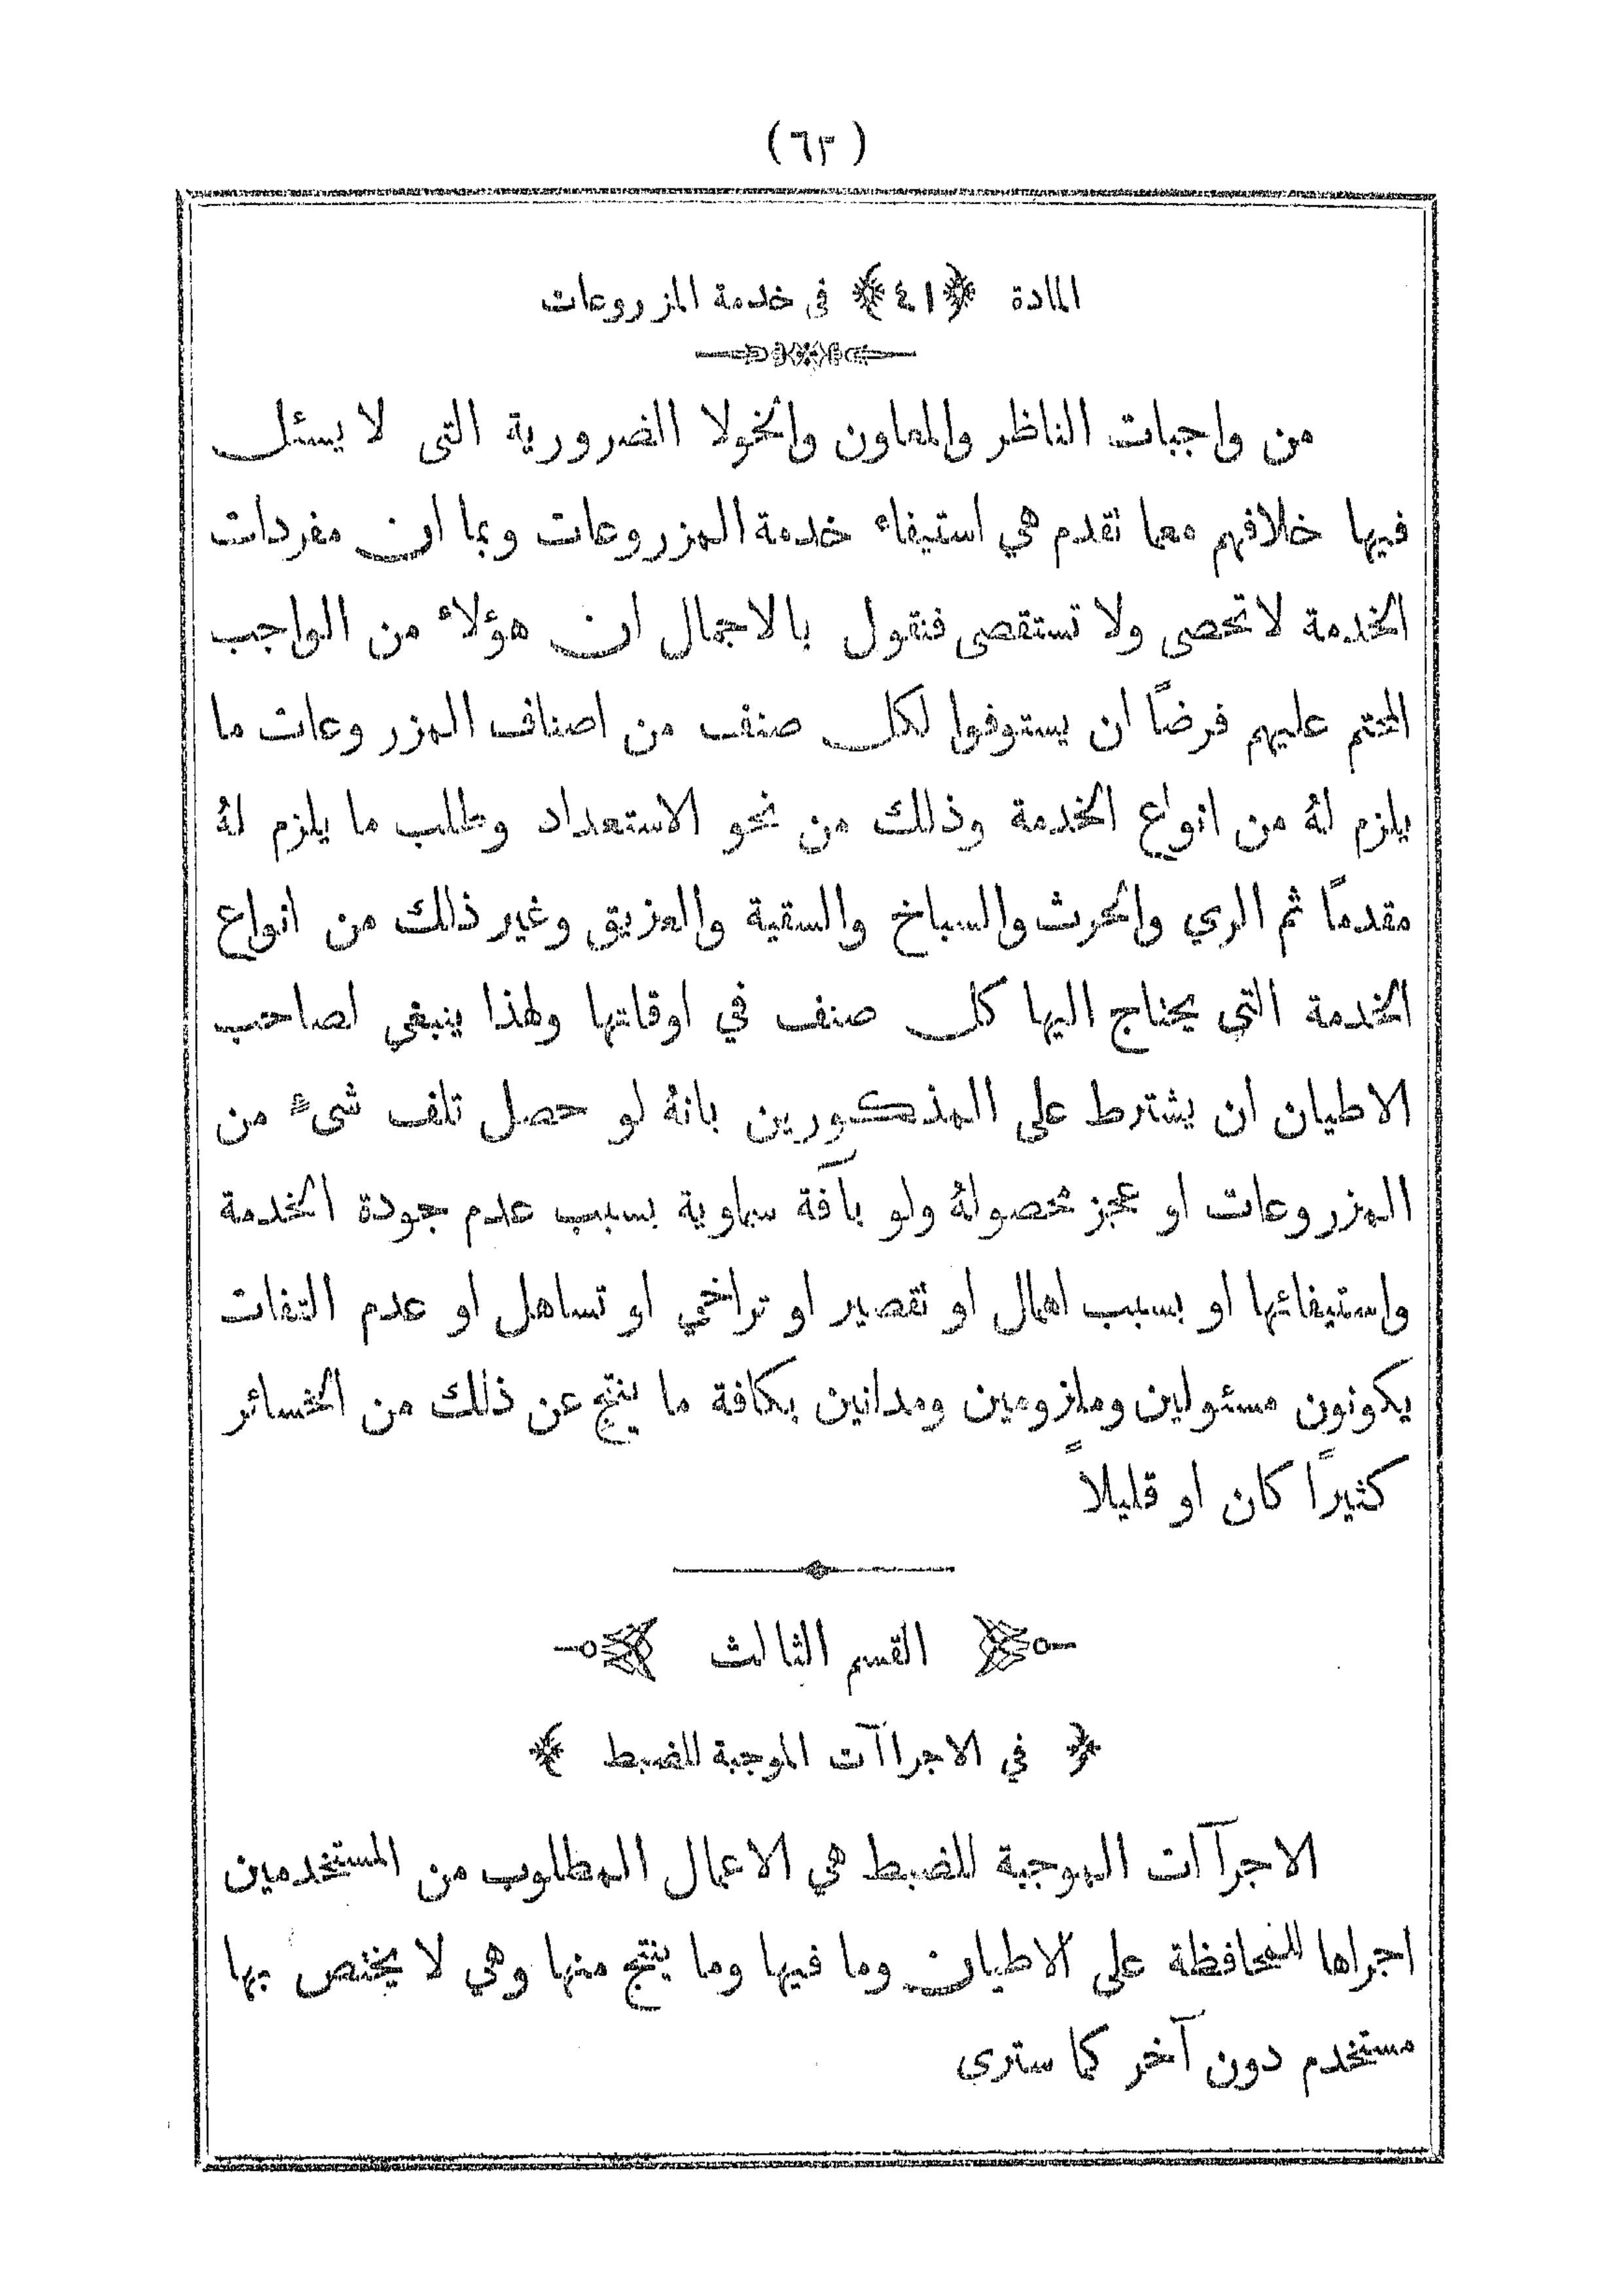 (٦٣)
المادة ﴿٤١﴾ فى خدمة المزروعات
من واجبات الناظر والمعاون والخولا الضرورية التى لا يسئل
فيها خلافهم معما تقدم هي استيفاء خدمة المزروعات وبما ان مفردات
الخدمة لا تحصى ولا تستقصى فنقول بالاجمال ان هؤلاء من الواجب
المحتم عليهم فرضاً ان يستوفوا لكل صنف من اصناف المزروعات ما
يلزم لهُ من انواع الخدمة وذلك من نحو الاستعداد وطلب ما يلزم لهُ
مقدماً ثم الري والحرث والسباخ والسقية والعزيق وغير ذلك من انواع
الخدمة التي يحتاج اليها كل صنف في اوقاتها ولهذا ينبغي لصاحب
الاطيان ان يشترط على المذكورين بانهُ لو حصل تلف شىء من
المزروعات او عجز محصولهُ ولو بآفة سماوية بسبب عدم جودة الخدمة
واستيفائها او بسبب اهمال او تقصير او تراخي او تساهل او عدم التفات
يكونون مسئولين وملزومين ومدانين بكافة ما ينتج عن ذلك من الخسائر
كثيراً كان او قليلاً
القسم الثالث
﴿ في الاجراآت الموجبة للضبط ﴾
الاجراآت الموجبة للضبط هي الاعمال المطلوب من المستخدمين
اجراها للمحافظة على الاطيان وما فيها وما ينتج منها وهي لا يختص بها
مستخدم دون آخر كما سترى